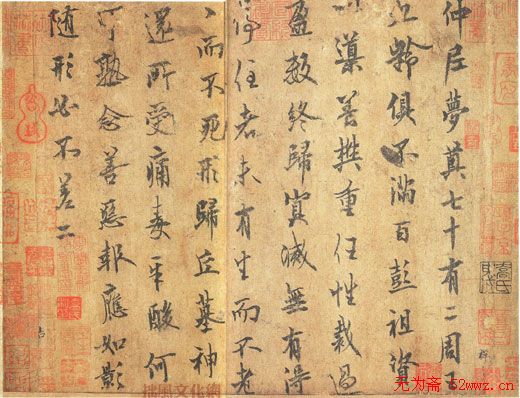 仲尼夢奠七十有二周王
九齡俱不滿百彭祖資
以導養樊重任性裁過
盈數終歸冥滅無有得
停住者未有生而不老
老而不死形歸丘墓神
還所受痛毒辛酸何
可熟念善惡報應如影
隨形必不差二
拙風文化網
无为斋 52wwz.cn